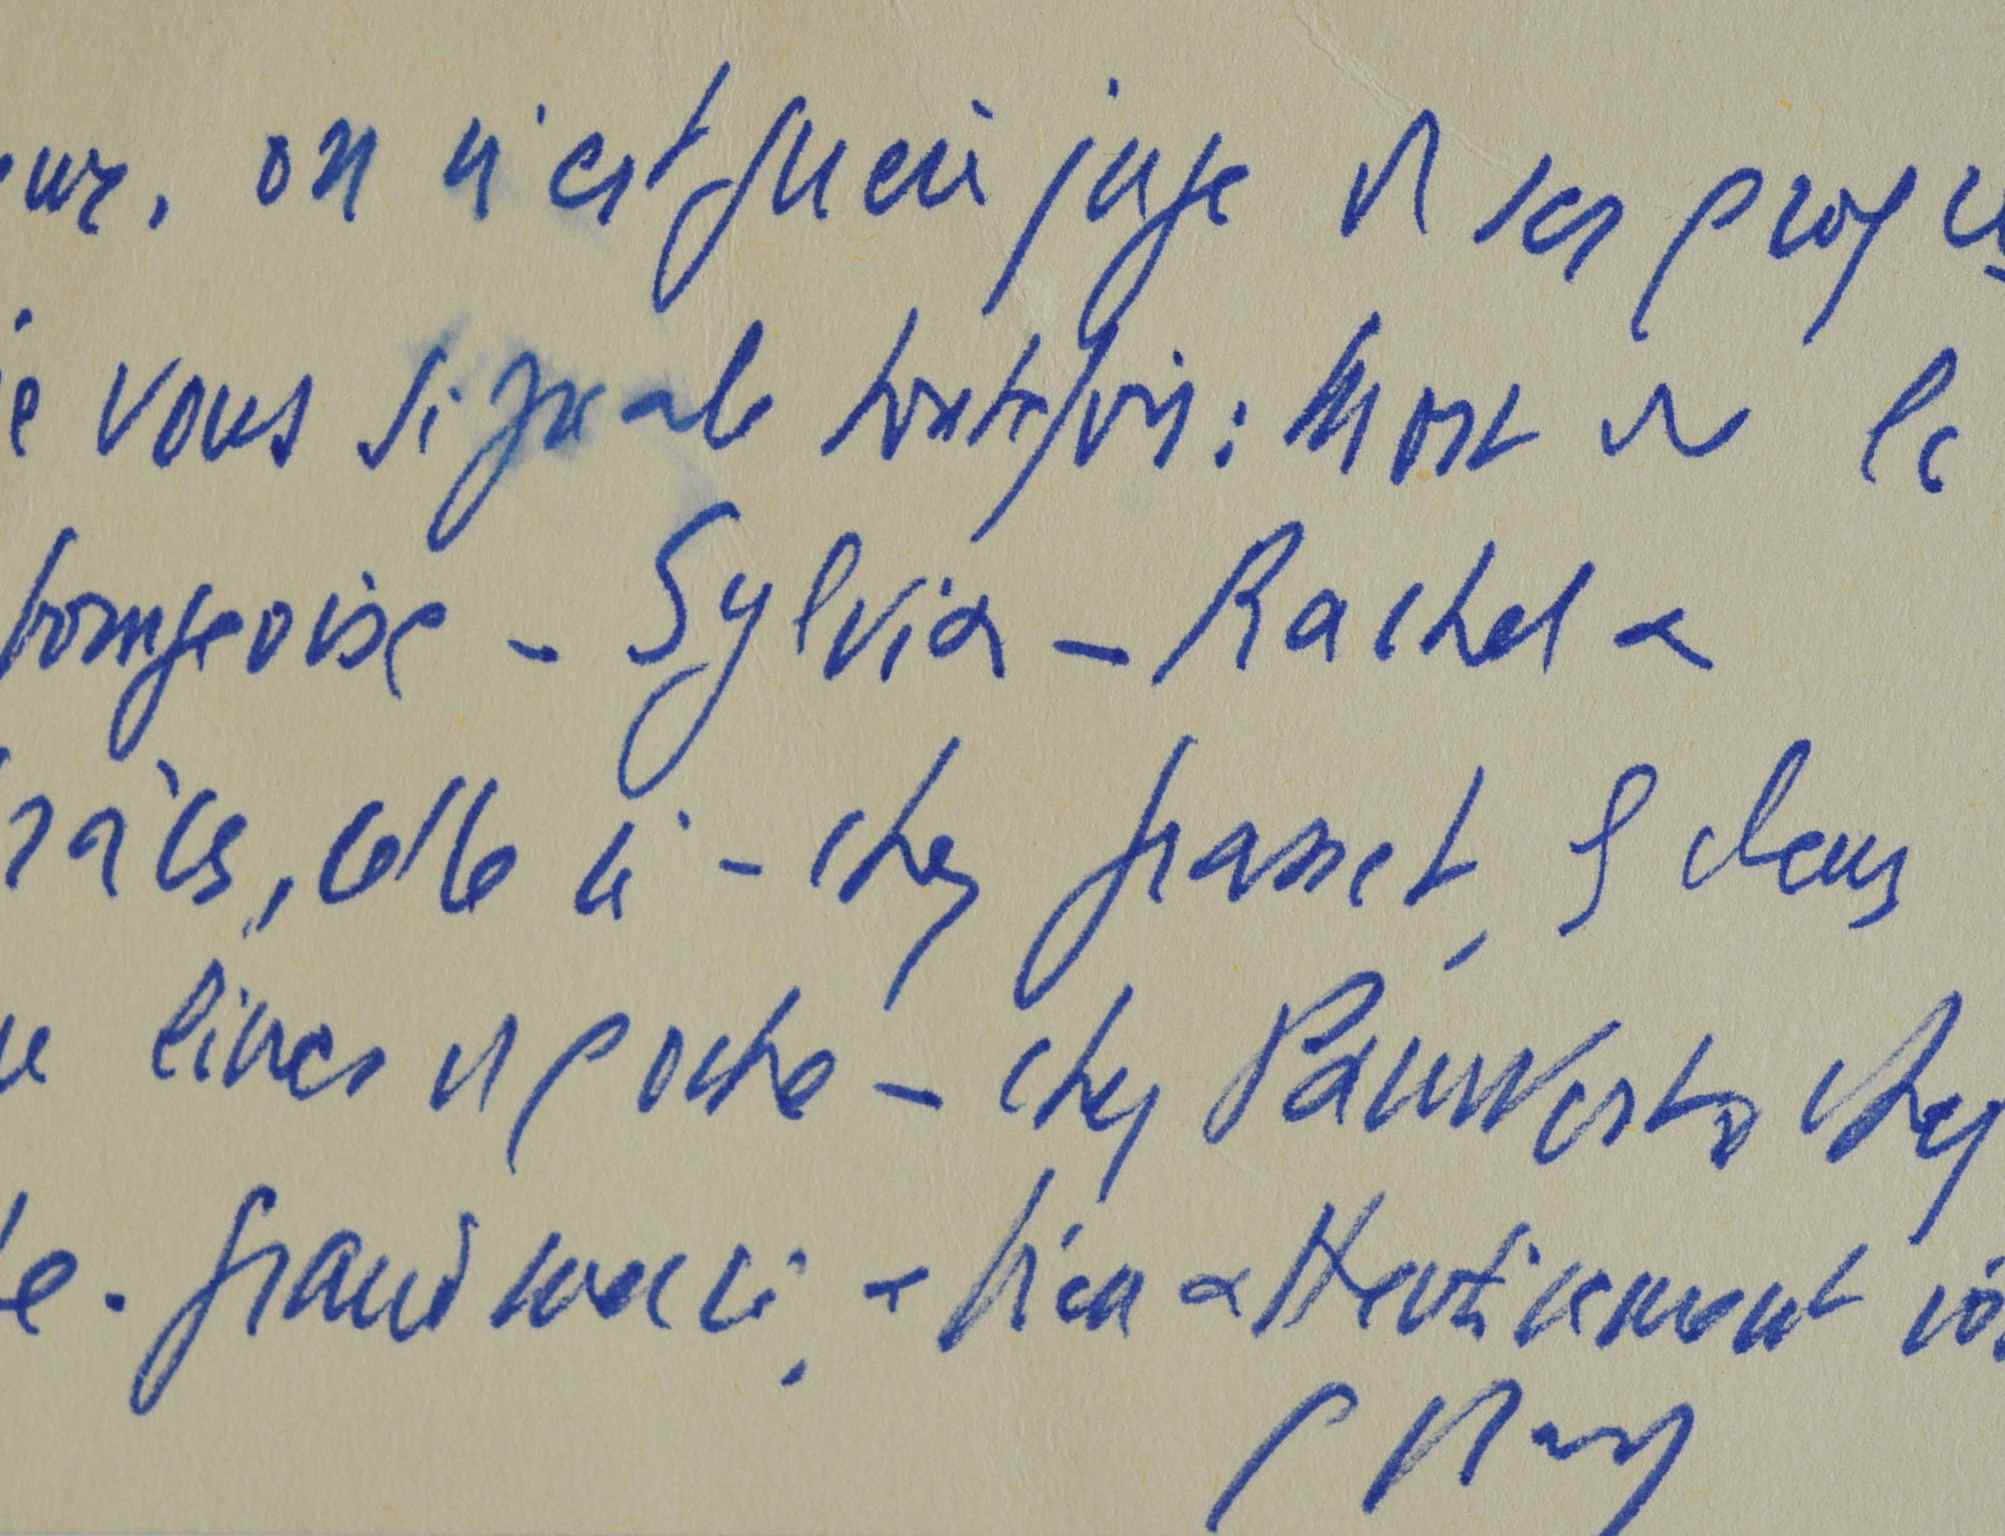 eur, on n'est guère juge de ses propres
je vous signale toutefois : Mort de la
bourgeoise - Sylvia - Rachel &
grâces, celle ci - chez grasset, & deux
livres de poche - chez Pauvert, chez
grand merci, & bien attentivement vô